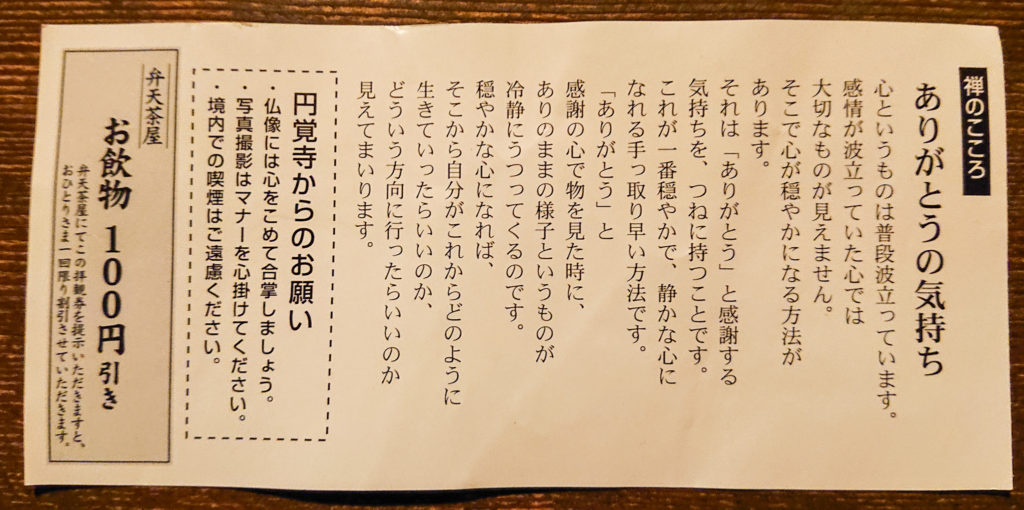 禅のこころ
ありがとうの気持ち
心というものは普段波立っています。
感情が波立っていた心では
大切なものが見えません。
そこで心が穏やかになる方法が
あります。
それは「ありがとう」と感謝する
気持ちを、つねに持つことです。
これが一番穏やかで、静かな心に
なれる手っ取り早い方法です。
「ありがとう」と
感謝の心で物を見た時に、
ありのままの様子というものが
冷静にうつってくるのです。
穏やかな心になれば、
そこから自分がこれからどのように
生きていったらいいのか、
どういう方向に行ったらいいのか
見えてまいります。
円覚寺からのお願い
・仏像には心をこめて合掌しましょう。
・写真撮影はマナーを心掛けてください。
・境内での喫煙はご遠慮ください。
弁天茶屋
お飲物 100円引き
弁天茶屋にてこの拝観券を提示いただきますと、
おひとりさま一回限り割引させていただきます。